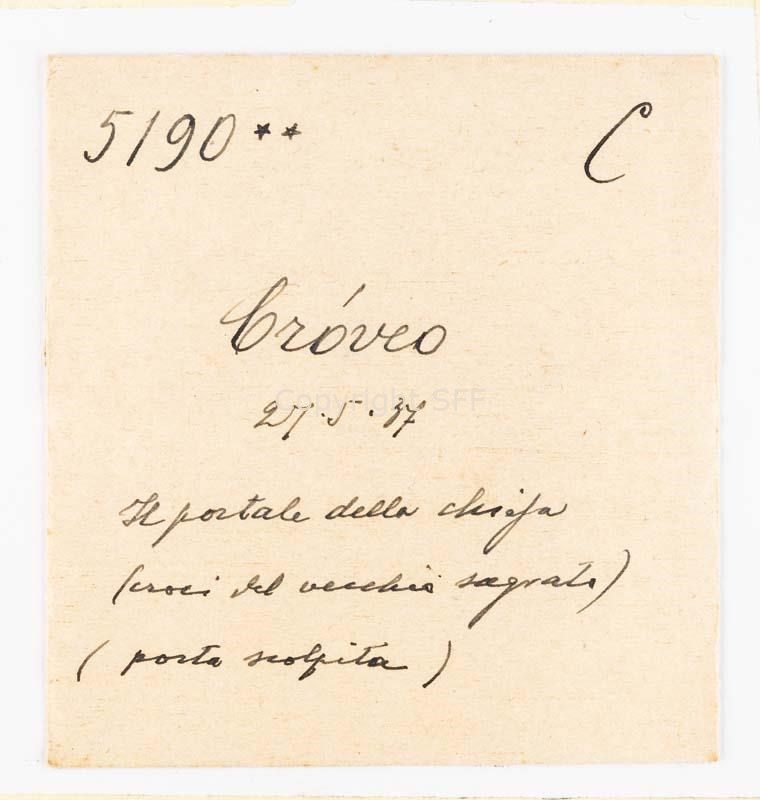 5190** C
Cróveo
27.5.37
Copyright SFF
Il portale della chiesa
(croci del vecchio sagrato)
( porta scolpita )